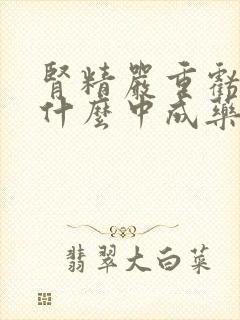 腎精嚴重虧
什麼中成藥
翡翠大白菜